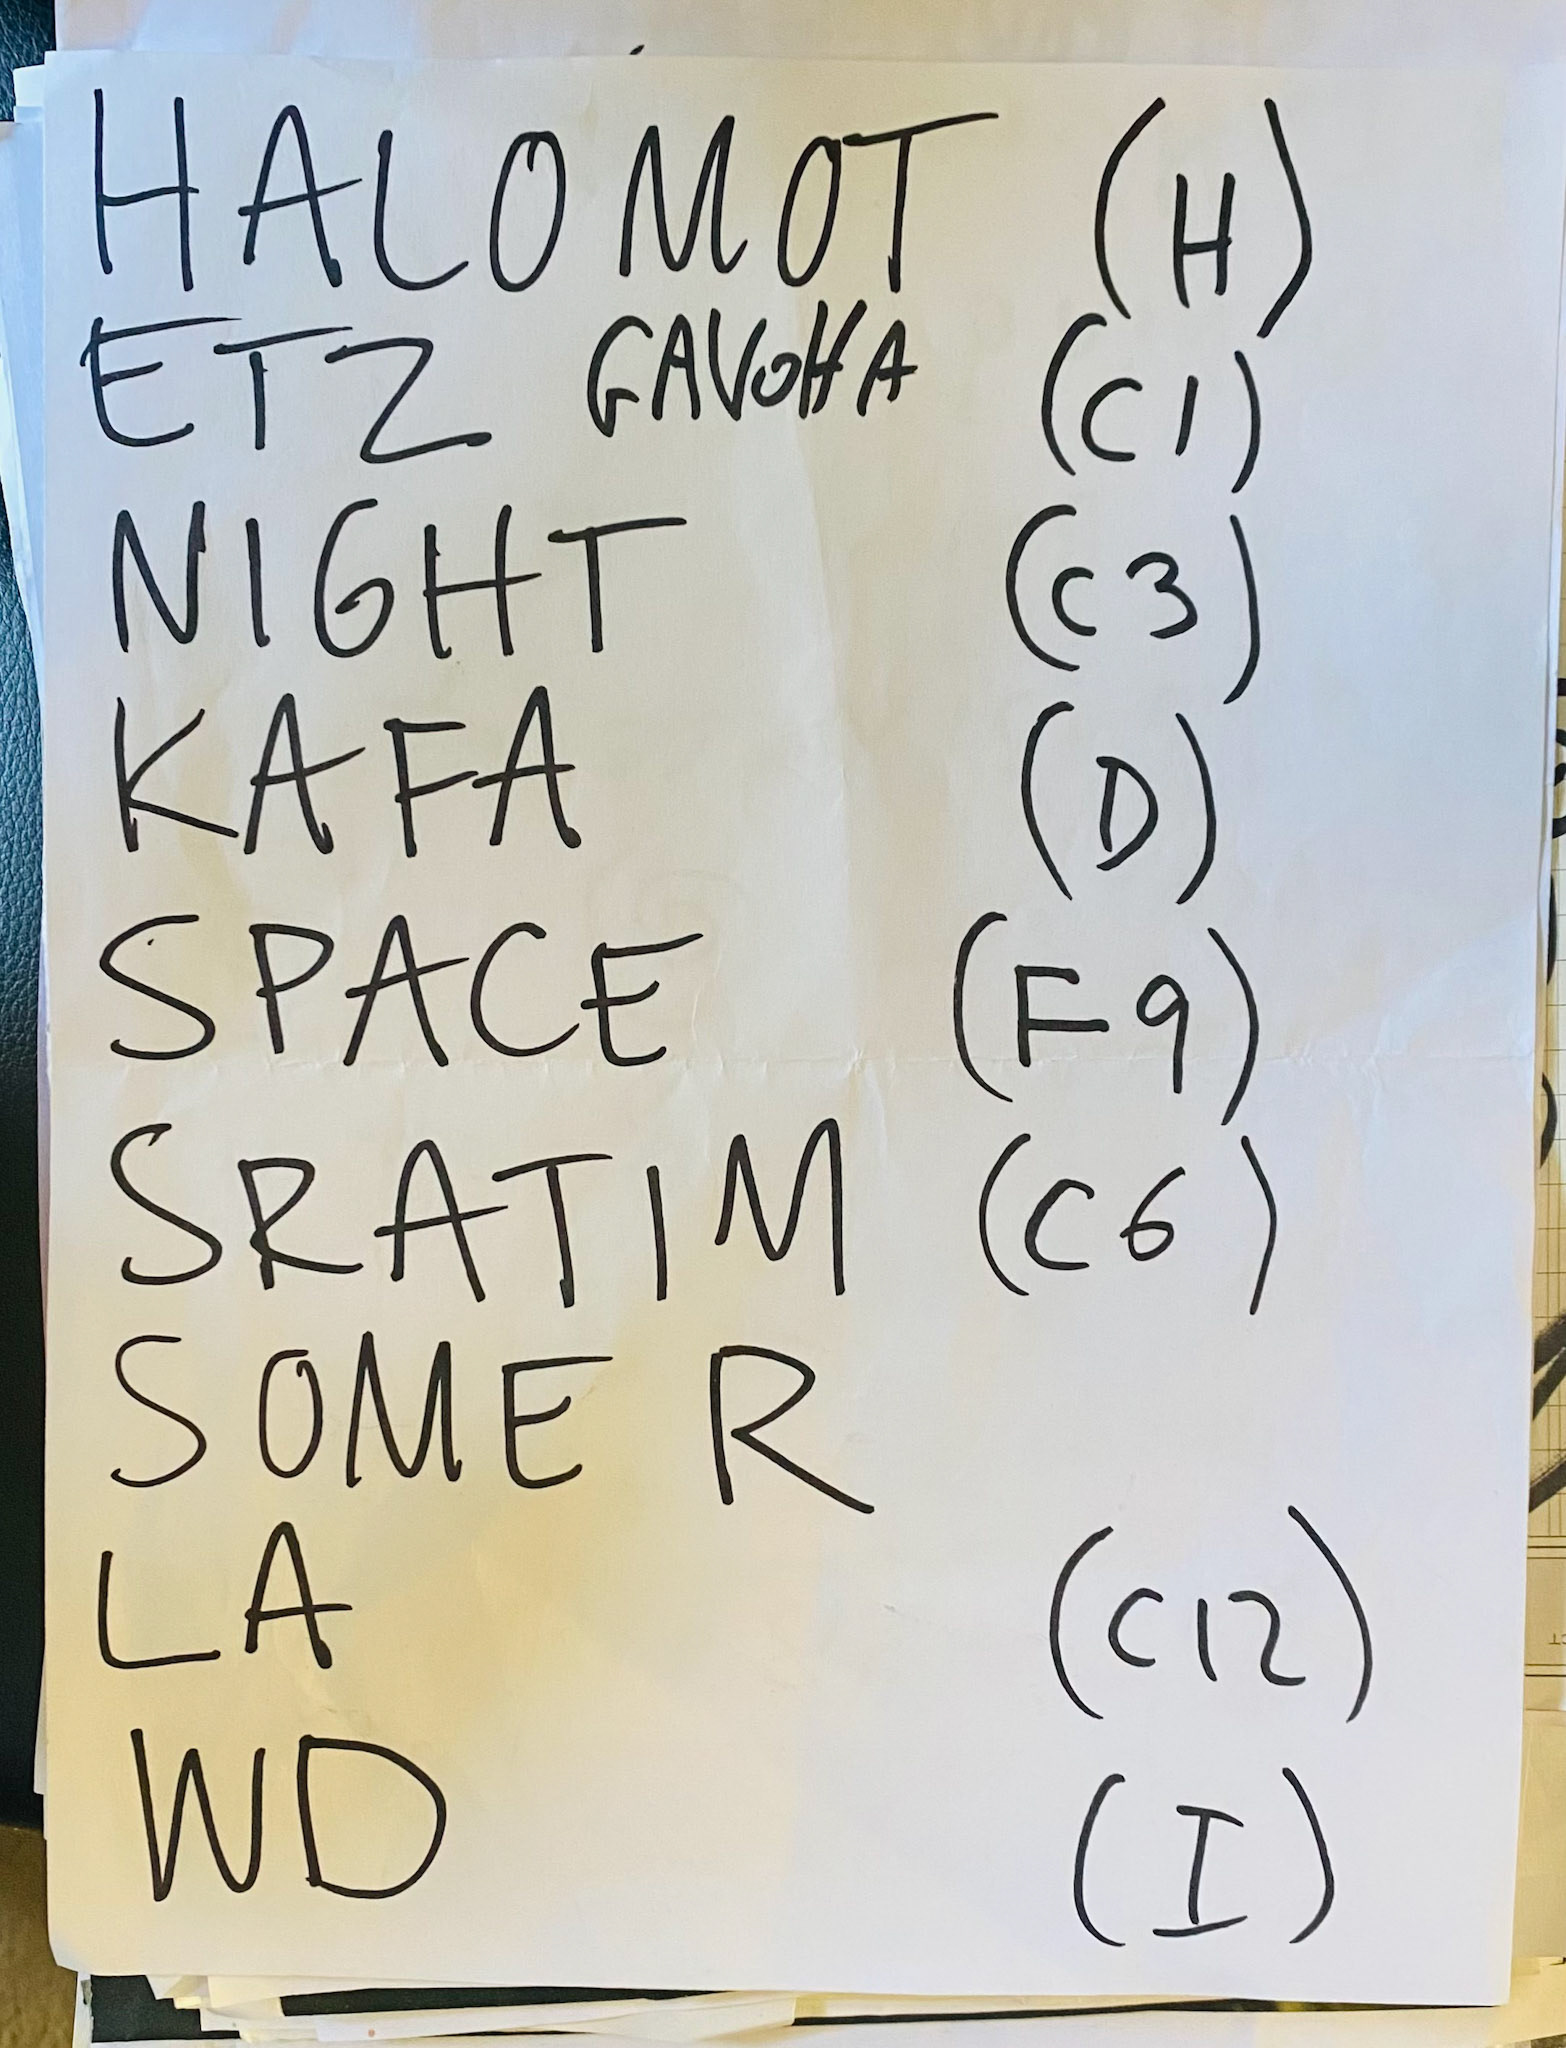 HALOMOT (H)
ETZ GAVOHA (C1)
NIGHT (C3)
KAFA (D)
SPACE (F9)
SRATIM (C6)
SOME R
LA (C12)
WD (I)